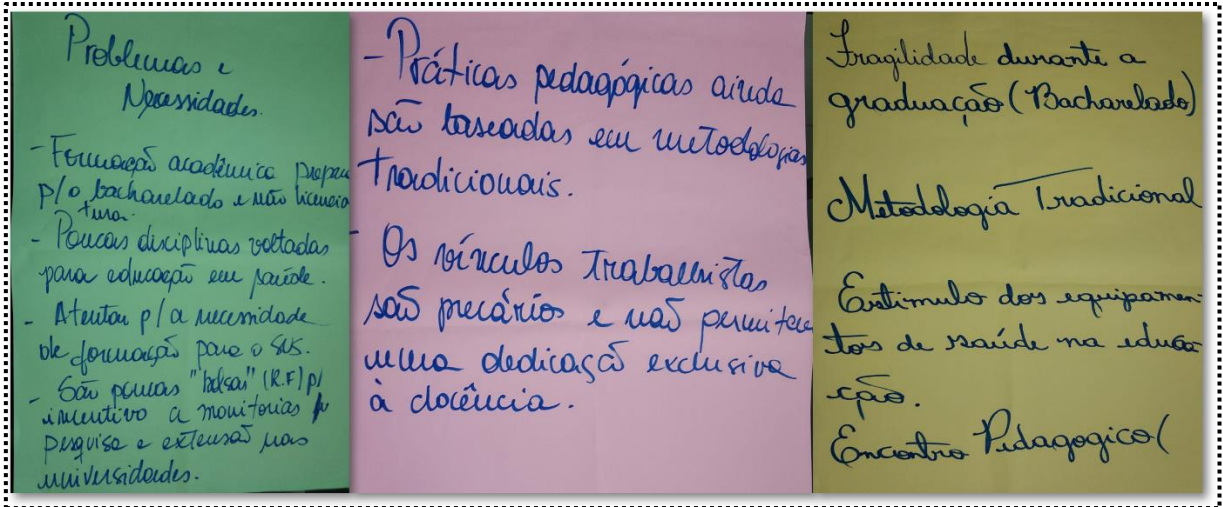 Problemas e
Necessidades.
- Formação acadêmica prepara
p/o bacharelado e não licencia
tura.
- Poucas disciplinas voltadas
para educação em saúde.
- Atentar p/ a necessidade
de formação para o SUS.
- São poucas "bolsas" (R.F) p/
incentivo a monitorias
pesquisa e extensão nas
universidades.
- Práticas pedagógicas ainda
são baseadas em metodologias
tradicionais.
- Os vínculos trabalhistas
são precários e não permitem
uma dedicação exclusiva
à docência.
Fragilidade durante a
graduação (Bacharelado)
Metodologia Tradicional
Estimulo dos equipamen-
tos de saúde na educa
ção.
Encontro Pedagogico (